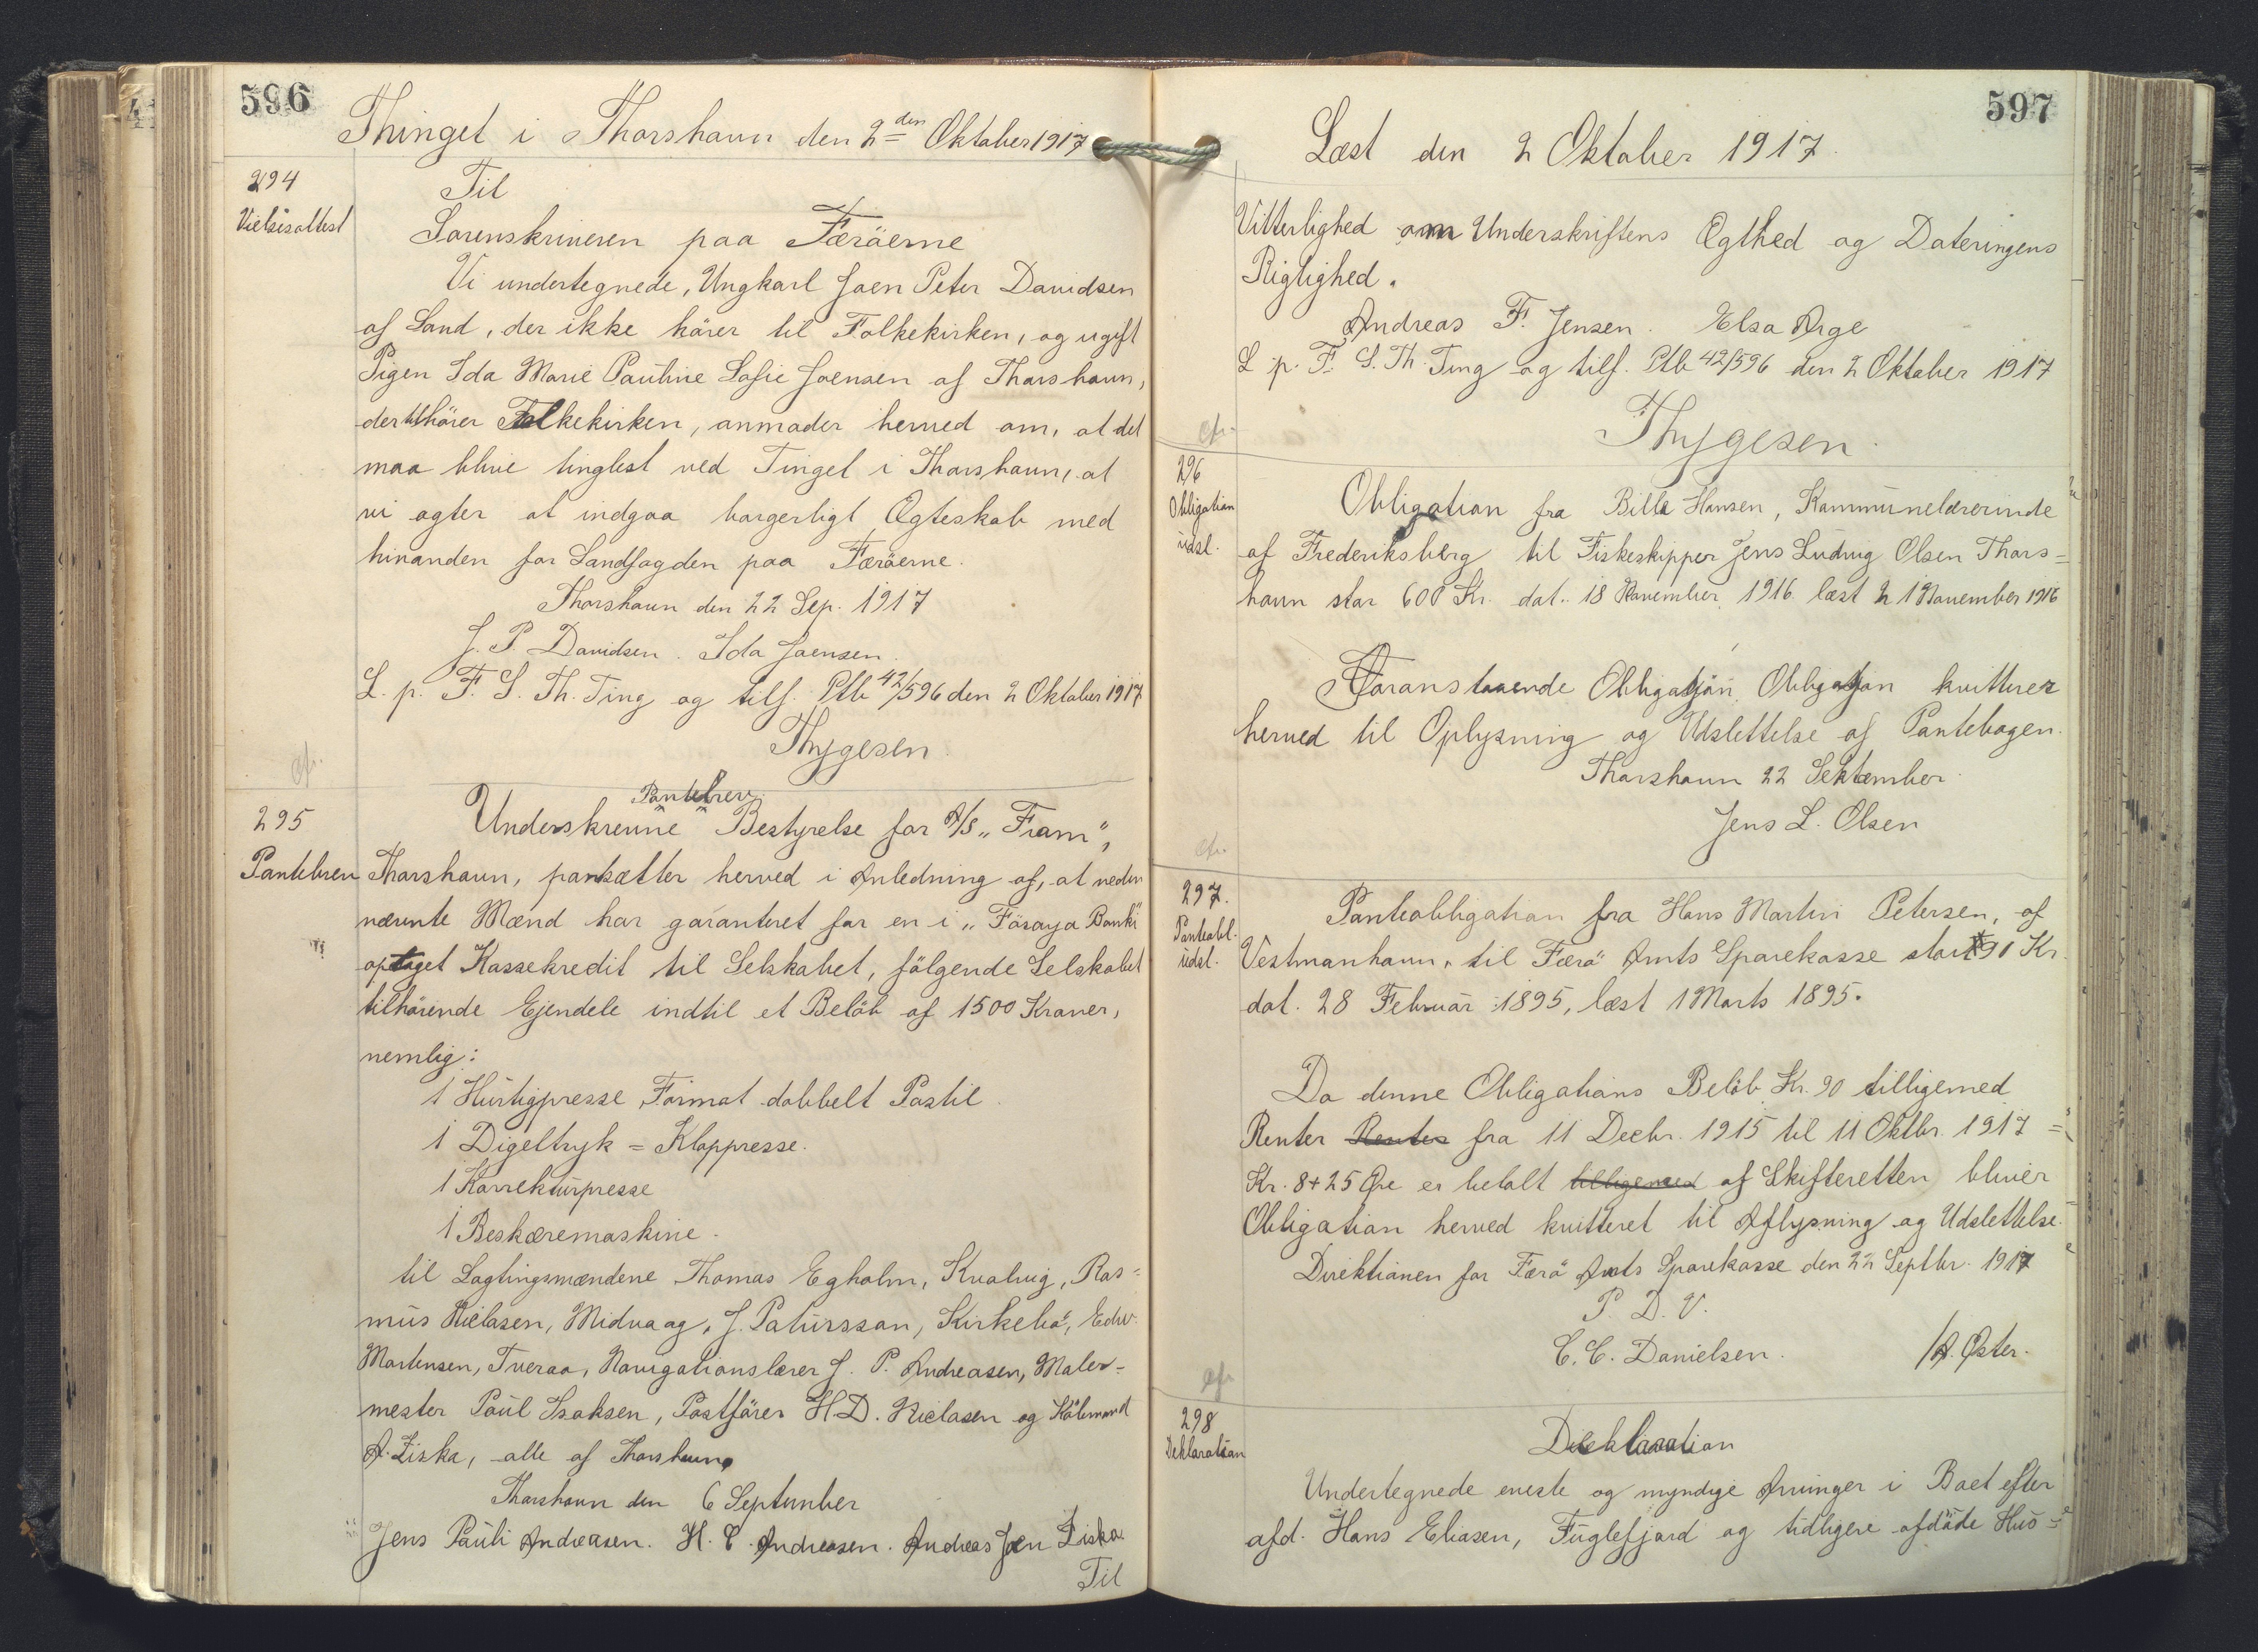 596
Thinget i Thorshavn den 2den Oktober 1917
294
Vielsesattest
Til
Sorenskriveren paa Færöerne
Vi undertegnede, Ungkarl Joen Peter Davidsen
af Sand, der ikke hörer til Folkekirken, og ugift
Pigen Ida Marie Pauline Sofie Joensen af Thorshavn,
der tilhörer Folkekirken, anmoder herved om, at det
maa blive tinglest ved Tinget i Thorshavn, at
vi agter at indgaa borgerligt Ægteskab med
hinanden for Landfogden paa Færöerne.
Thorshavn den 22 Sep. 1917
J. P. Davidsen. Ida Joensen.
L. p. F. S. Th. Ting og tilf. Ptb 42/596 den 2 Oktober 1917
Thygesen.
cfr.
295
Pantebrev
Pantebrev.
Underskrevne Bestyrelse for A/S „Fram",
Thorshavn, pantsætter herved i Anledning af, at neden
nævnte Mænd har garanteret for en i „Föroya Banki"
optaget Kassekredit til Selskabet, fölgende Selskabet
tilhörende Ejendele indtil et Belöb af 1500 Kroner,
nemlig:
1 Hurtigpresse, Format dobbelt Postil.
1 Digeltryk = Klappresse.
1 Korrekturpresse
1 Beskæremaskine.
til Lagtingsmændene Thomas Egholm, Kvalvig, Ras=
mus Nielasen, Midvaag, J. Patursson, Kirkebö, Edw.
Mortensen, Tveraa, Navigationslærer J. P. Andreasen, Maler-
mester Poul Isaksen, Postförer H. D. Nielasen og Köbmand
A. Ziska, alle af Thorshavn.
Thorshavn den 6 September
Jens Pauli Andreasen. H. C. Andreasen. Andreas Joen Ziska
Til
597
Læst den 2 Oktober 1917.
Vitterlighed om Underskriftens Ægthed og Dateringens
Rigtighed.
Andreas F. Jensen. Elsa Arge
L p. F. S. Th. Ting og tilf. Ptb 42/596 den 2 Oktober 1917
Thygesen.
cfr.
296
Obligation
udsl.
Obligation fra Billa Hansen, Kommunelærerinde
af Frederiksberg til Fiskeskipper Jens Ludvig Olsen Thors=
havn stor 600 Kr. dat. 18 November 1916 læst 21 November 1916
Foranstaaende Obligasjon Obligasjon kvitterer
herved til Oplysning og Udslettelse af Pantebogen.
Thorshavn 22 Sektember.
Jens L. Olsen
cfr.
297.
Panteobl.
udsl.
Panteobligation fra Hans Martin Petersen, af
Vestmanhavn, til Færö Amts Sparekasse stor 90 Kr.
dat. 28 Februar 1895, læst 1 Marts 1895.
Da denne Obligations Belöb Kr. 90 tilligemed
Renter Renter fra 11 Decbr. 1915 til 11 Oktbr. 1917 =
Kr. 8+25 Øre er betalt tilligemed af Skifteretten bliver
Obligation herved kvitteret til Aflysning og Udslettelse.
Direktionen for Færö Amts Sparekasse den 22 Septbr. 1917
P. D. V.
C. C. Danielsen. /A. Øster.
cfr
298
Deklaration
Deklaration
Undertegnede eneste og myndige Arvinger i Boet efter
afd. Hans Eliasen, Fuglefjord og tidligere afdöde Hus=